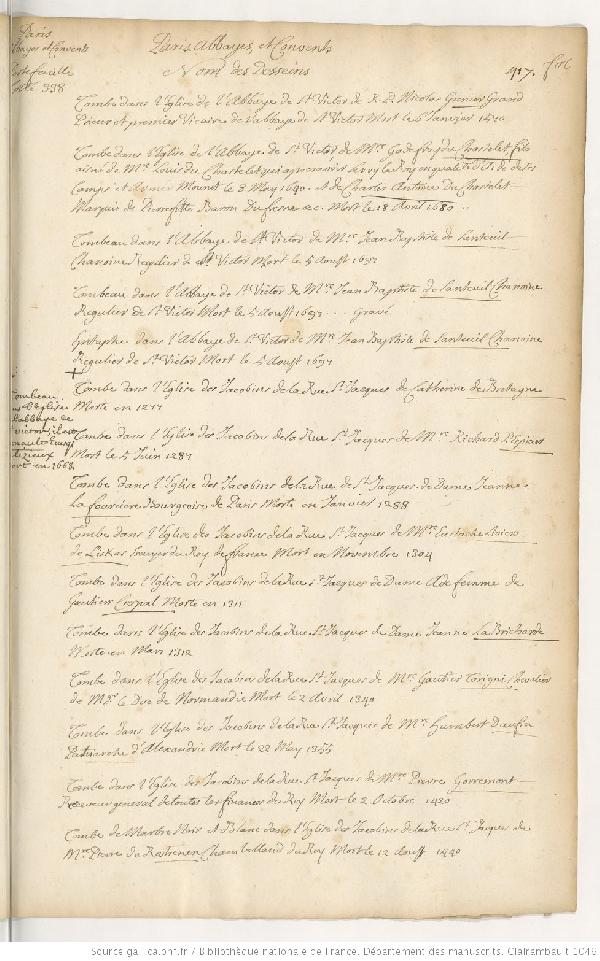 Paris Abbayes et Convents
Nom des desseins
Paris
Abbayes et Convents
Portefeuille
917. fol
Tombe dans l'Eglise de l'Abbaye de St Victor de R. P. Nicolas Grand
Prieur et premier Vicaire de l'abbaye de St Victor Mort le 6 Janvier
Tombe dans l'Eglise de l'Abbaye de St Victor de Mre Godefroy du Chastelet fils
aisne de Mre Louis du Chastelet
Mourut le 3 May 1640. et de Charles Antoine Du Chastelet
Marquis de Pierrefitte Baron Du fresne &c. Mort le 18 Avril 1680
Tombeau dans l'Abbaye de St Victor de Mre Jean Baptiste de Senteuil
Chanoine Regulier de St Victor Mort le 5 Aoust 1697
Tombeau dans l'Abbaye de St Victor de Mre Jean Baptiste de Santeuil Chanoine
Regulier de St Victor Mort le 5 Aoust 1697 .... Gravé
Epitaphe dans l'Abbaye de St Victor de Mre Jean Baptiste de Santeuil Chanoine
Regulier de St Victor Mort le 5 Aoust 1697
+
Tombeau
l'Eglise
l'abbaye de
en 1668
Tombe dans l'Eglise des Jacobins de la Rue St Jacques de Catherine de Bretagne
Morte en
Tombe dans l'Eglise des Jacobins de la Rue St Jacques de Mre Richard
Mort le 5 Juin 1287
Tombe dans l'Eglise des Jacobins de la Rue de St Jacques de Dame Jeanne
la fourriere Bourgeoise de Paris Morte en Janvier 1288
Tombe dans l'Eglise des Jacobins de la Rue St Jacques de Mre Eustache
Escuyer du Roy de france Mort en Novembre 1304
Tombe dans l'Eglise des Jacobins de la Rue St Jacques de Dame Ade femme de
Gautier Morte en
Tombe dans l'Eglise des Jacobins de la Rue St Jacques de Dame Jeanne La Bricharde
Morte en Mars 1312
Tombe dans l'Eglise des Jacobins de la Rue St Jacques de Mre Gautier Torigni Chevalier
de Mgr le Duc de Normandie Mort le 2 Avril 1340
Tombe dans l'Eglise des Jacobins de la Rue St Jacques de Mre Humbert Daufin
Patriarche d'Alexandrie Mort le 22 May 1355
Tombe dans l'Eglise des Jacobins de la Rue St Jacques de Mre Pierre Gorremont
Receveur general de toutes les finances du Roy Mort le 2 Octobre 1430
Tombe de Marbre Noir et Blanc dans l'Eglise des Jacobins de la Rue St Jacques de
Mre Pierre de Rostrenen Chambelland du Roy Mort le 12 Aoust 1440
Source gallica.bnf.fr / Bibliothèque nationale de France. Département des manuscrits. Clairambault 1046